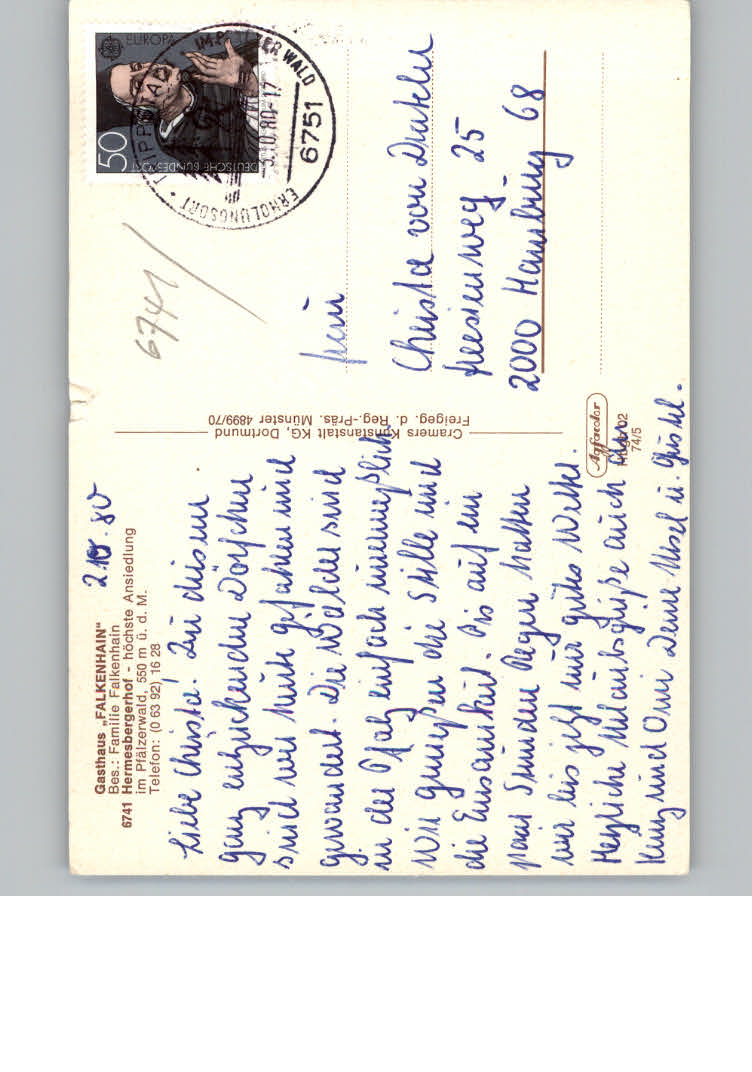 Gasthaus „FALKENHAIN"
Bes.: Familie Falkenhain
6741 Hermesbergerhof - höchste Ansiedlung
im Pfälzerwald, 550 m ü. d. M.
Telefon: (0 63 92) 16 28
2.10.80
Liebe Christa! Zu diesem
ganz entzückenden Dörfchen
sind wir heute gefahren und
gewandert. Die Wälder sind
in der Pfalz einfach unermeßlich.
Wir genießen die Stille und
die Einsamkeit. Bis auf ein
paar Stunden Regen hatten
wir bis jetzt nur gutes Wetter.
Herzliche Urlaubsgrüße auch an
und Omi Deine Ursel u. Gustel.
Cramers Kunstanstalt KG, Dortmund
Freigeg. d. Reg.-Präs. Münster 4899/70
Agfacolor
02
74/5
EUROPA
50
DEUTSCHE BUNDESPOST
ERHOLUNGSORT
.10.80-17
6751
6741
Christa von
25
2000 Hamburg 68